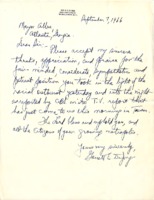 September 7, 1966
Mayor Allen
Atlanta, Georgia
Dear Sir:
Please accept my sincere
thanks, appreciation, and praise for the
fair-minded, considerate, sympathetic, and
patient position you took in the light of the
racial outburst yesterday and into the night
as reported by CBS in the T.V. report that
has just come to us this morning in
The Lord bless and uphold you, and
all the citizens of your growing metropolis
Yours very sincerely,